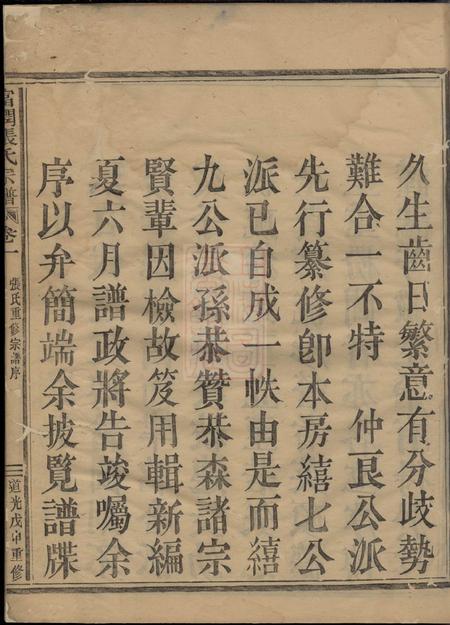 久生齒日繁意有分歧勢
難合一不特 仲艮公派
先行纂修卽本房繥七公
派已自成一帙由是而繥
九公派孫恭贊恭森諸宗
賢輩因檢故笈用輯新編
夏六月譜政將告竣囑余
序以弁簡端余披覽譜牒
富閏張氏宗譜 卷一
張氏重修宗譜序
道光戊申重修